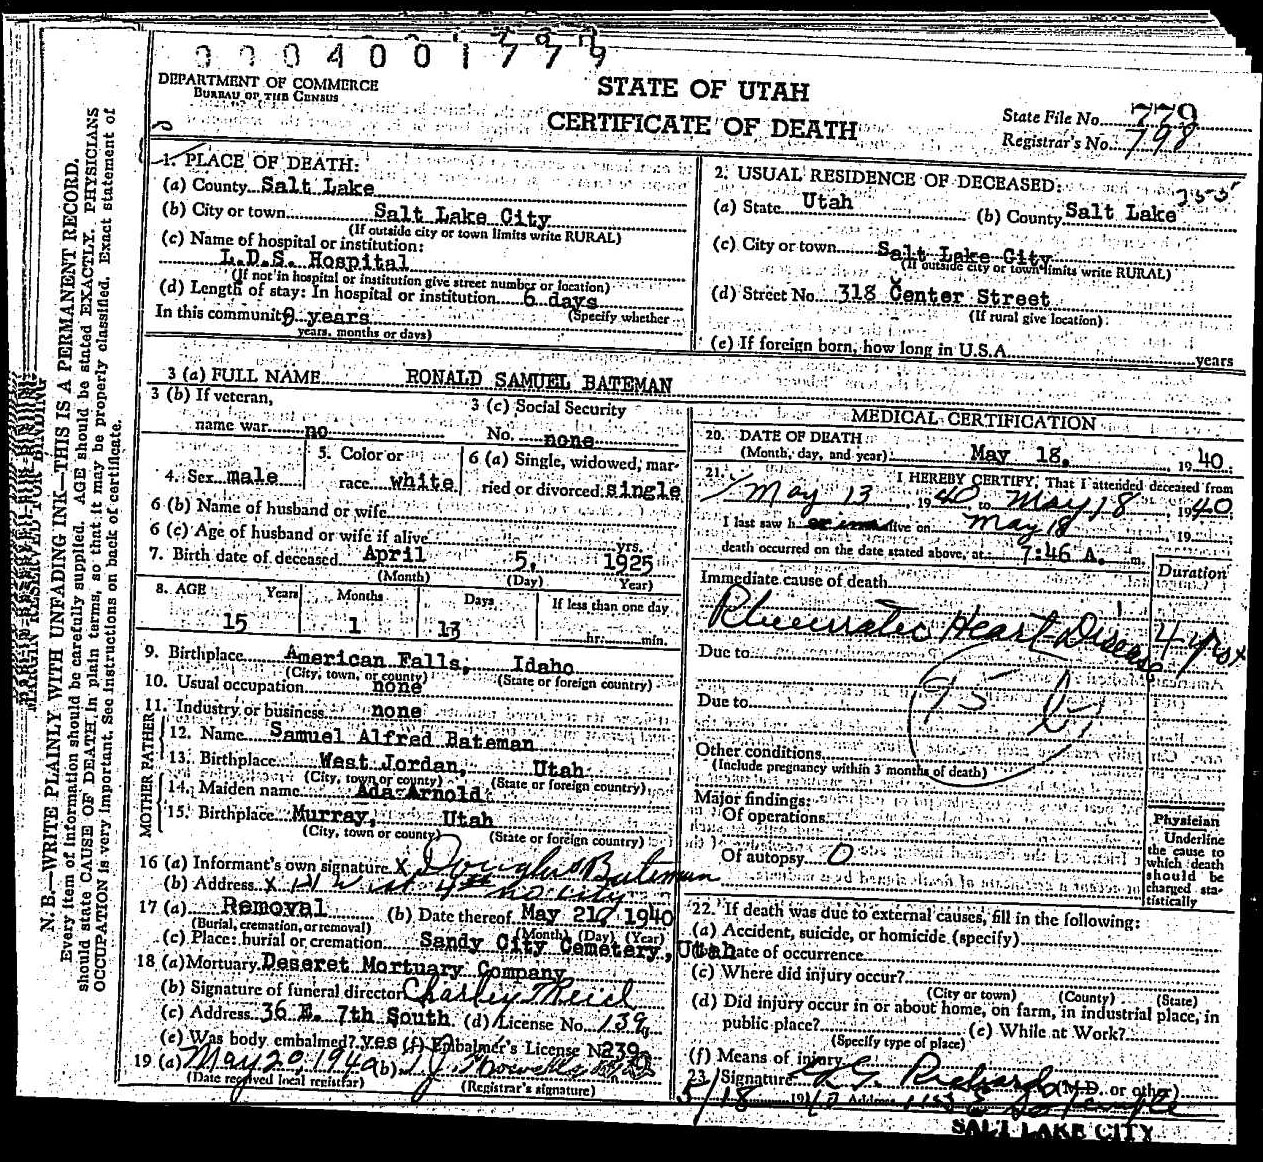 0004001779
DEPARTMENT OF COMMERCE
BUREAU OF THE CENSUS
STATE OF UTAH
CERTIFICATE OF DEATH
State File No. 779
Registrar's No. 798
1. PLACE OF DEATH:
(a) County Salt Lake
(b) City or town Salt Lake City
(If outside city or town limits write RURAL)
(c) Name of hospital or institution:
L.D.S. Hospital
(If not in hospital or institution give street number or location)
(d) Length of stay: In hospital or institution 6 days
(Specify whether
In this community 9 years
years, months or days)
2. USUAL RESIDENCE OF DECEASED: 755
(a) State Utah (b) County Salt Lake
(c) City or town Salt Lake City
(If outside city or town limits write RURAL)
(d) Street No. 318 Center Street
(If rural give location)
(e) If foreign born, how long in U.S.A. years
3 (a) FULL NAME RONALD SAMUEL BATEMAN
3 (b) If veteran,
name war no
3 (c) Social Security
No. none
4. Sex male
5. Color or
race white
6 (a) Single, widowed, mar-
ried or divorced single
6 (b) Name of husband or wife
6 (c) Age of husband or wife if alive yrs.
7. Birth date of deceased April 5, 1925
(Month) (Day) Year)
8. AGE Years Months Days If less than one day
15 1 13 hr. min.
9. Birthplace American Falls, Idaho
(City, town, or county) (State or foreign country)
10. Usual occupation none
11. Industry or business none
FATHER
12. Name Samuel Alfred Bateman
13. Birthplace West Jordan, Utah
(City, town or county) (State or foreign country)
MOTHER
14. Maiden name Ada Arnold
15. Birthplace Murray, Utah
(City, town or county) (State or foreign country)
16 (a) Informant's own signature X Douglas Bateman
(b) Address X
17 (a) Removal (b) Date thereof May 21, 1940
(Burial, cremation, or removal) (Month) (Day) (Year)
(c) Place: burial or cremation Sandy City Cemetery, Utah
18 (a) Mortuary Deseret Mortuary Company
(b) Signature of funeral director Charley Reid
(c) Address 36 E. 7th South (d) License No. 139
(e) Was body embalmed? yes (f) Embalmer's License No. 239
19 (a) May 20, 1940 (b)
(Date received local registrar) (Registrar's signature)
MEDICAL CERTIFICATION
20. DATE OF DEATH
(Month, day, and year) May 18, 1940
21. I HEREBY CERTIFY, That I attended deceased from
May 13 1940 to May 18, 1940
I last saw h alive on May 18 19
death occurred on the date stated above, at 7:46 A. m.
Duration
Immediate cause of death
Rheumatic Heart Disease 4 yrs
Due to
95 b
Due to
Other conditions
(Include pregnancy within 3 months of death)
Major findings:
Of operations
Of autopsy 0
Physician
Underline
the cause to
which death
should be
charged sta-
tistically
22. If death was due to external causes, fill in the following:
(a) Accident, suicide, or homicide (specify)
Date of occurrence
(c) Where did injury occur?
(City or town) (County) (State)
(d) Did injury occur in or about home, on farm, in industrial place, in
public place? (e) While at Work?
(Specify type of place)
(f) Means of injury
23. Signature (M.D. or other)
5/18 1940 Address
SALT LAKE CITY
MARGIN RESERVED FOR BINDING
N. B.—WRITE PLAINLY WITH UNFADING INK—THIS IS A PERMANENT RECORD.
Every item of information should be carefully supplied. AGE should be stated EXACTLY. PHYSICIANS
should state CAUSE OF DEATH, in plain terms, so that it may be properly classified. Exact statement of
OCCUPATION is very important. See instructions on back of certificate.